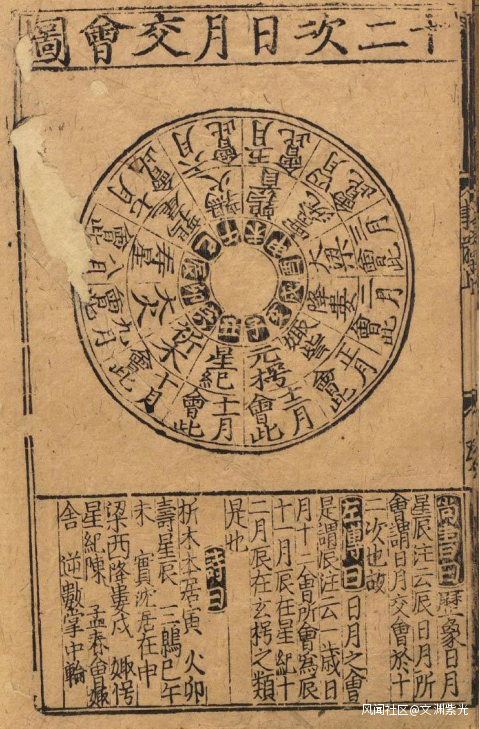 十二次日月交會圖
正月會此
娵訾
亥
二月會此
降婁
戌
三月會此
大梁
酉
四月會此
實沈
申
五月會此
鶉首
未
六月會此
鶉火
午
七月會此
鶉尾
巳
八月會此
壽星
辰
九月會此
大火
卯
十月會此
析木
寅
十一月會此
星紀
丑
十二月會此
元枵
子
尚書曰曆象日月
星辰注云辰日月所
會謂日月交會於十
二次也故
左傳曰日月之會
是謂辰注云一歲日
月十二會所會為辰
十一月辰在星紀十
二月辰在玄枵之類
是也
詩曰
析木本居寅 火卯
壽星辰 三鶉巳午
未 實沈居在申
梁酉降婁戌 娵枵
星紀陳 孟春會娵
舍 逆數掌中輪
风闻社区@文渊紫光